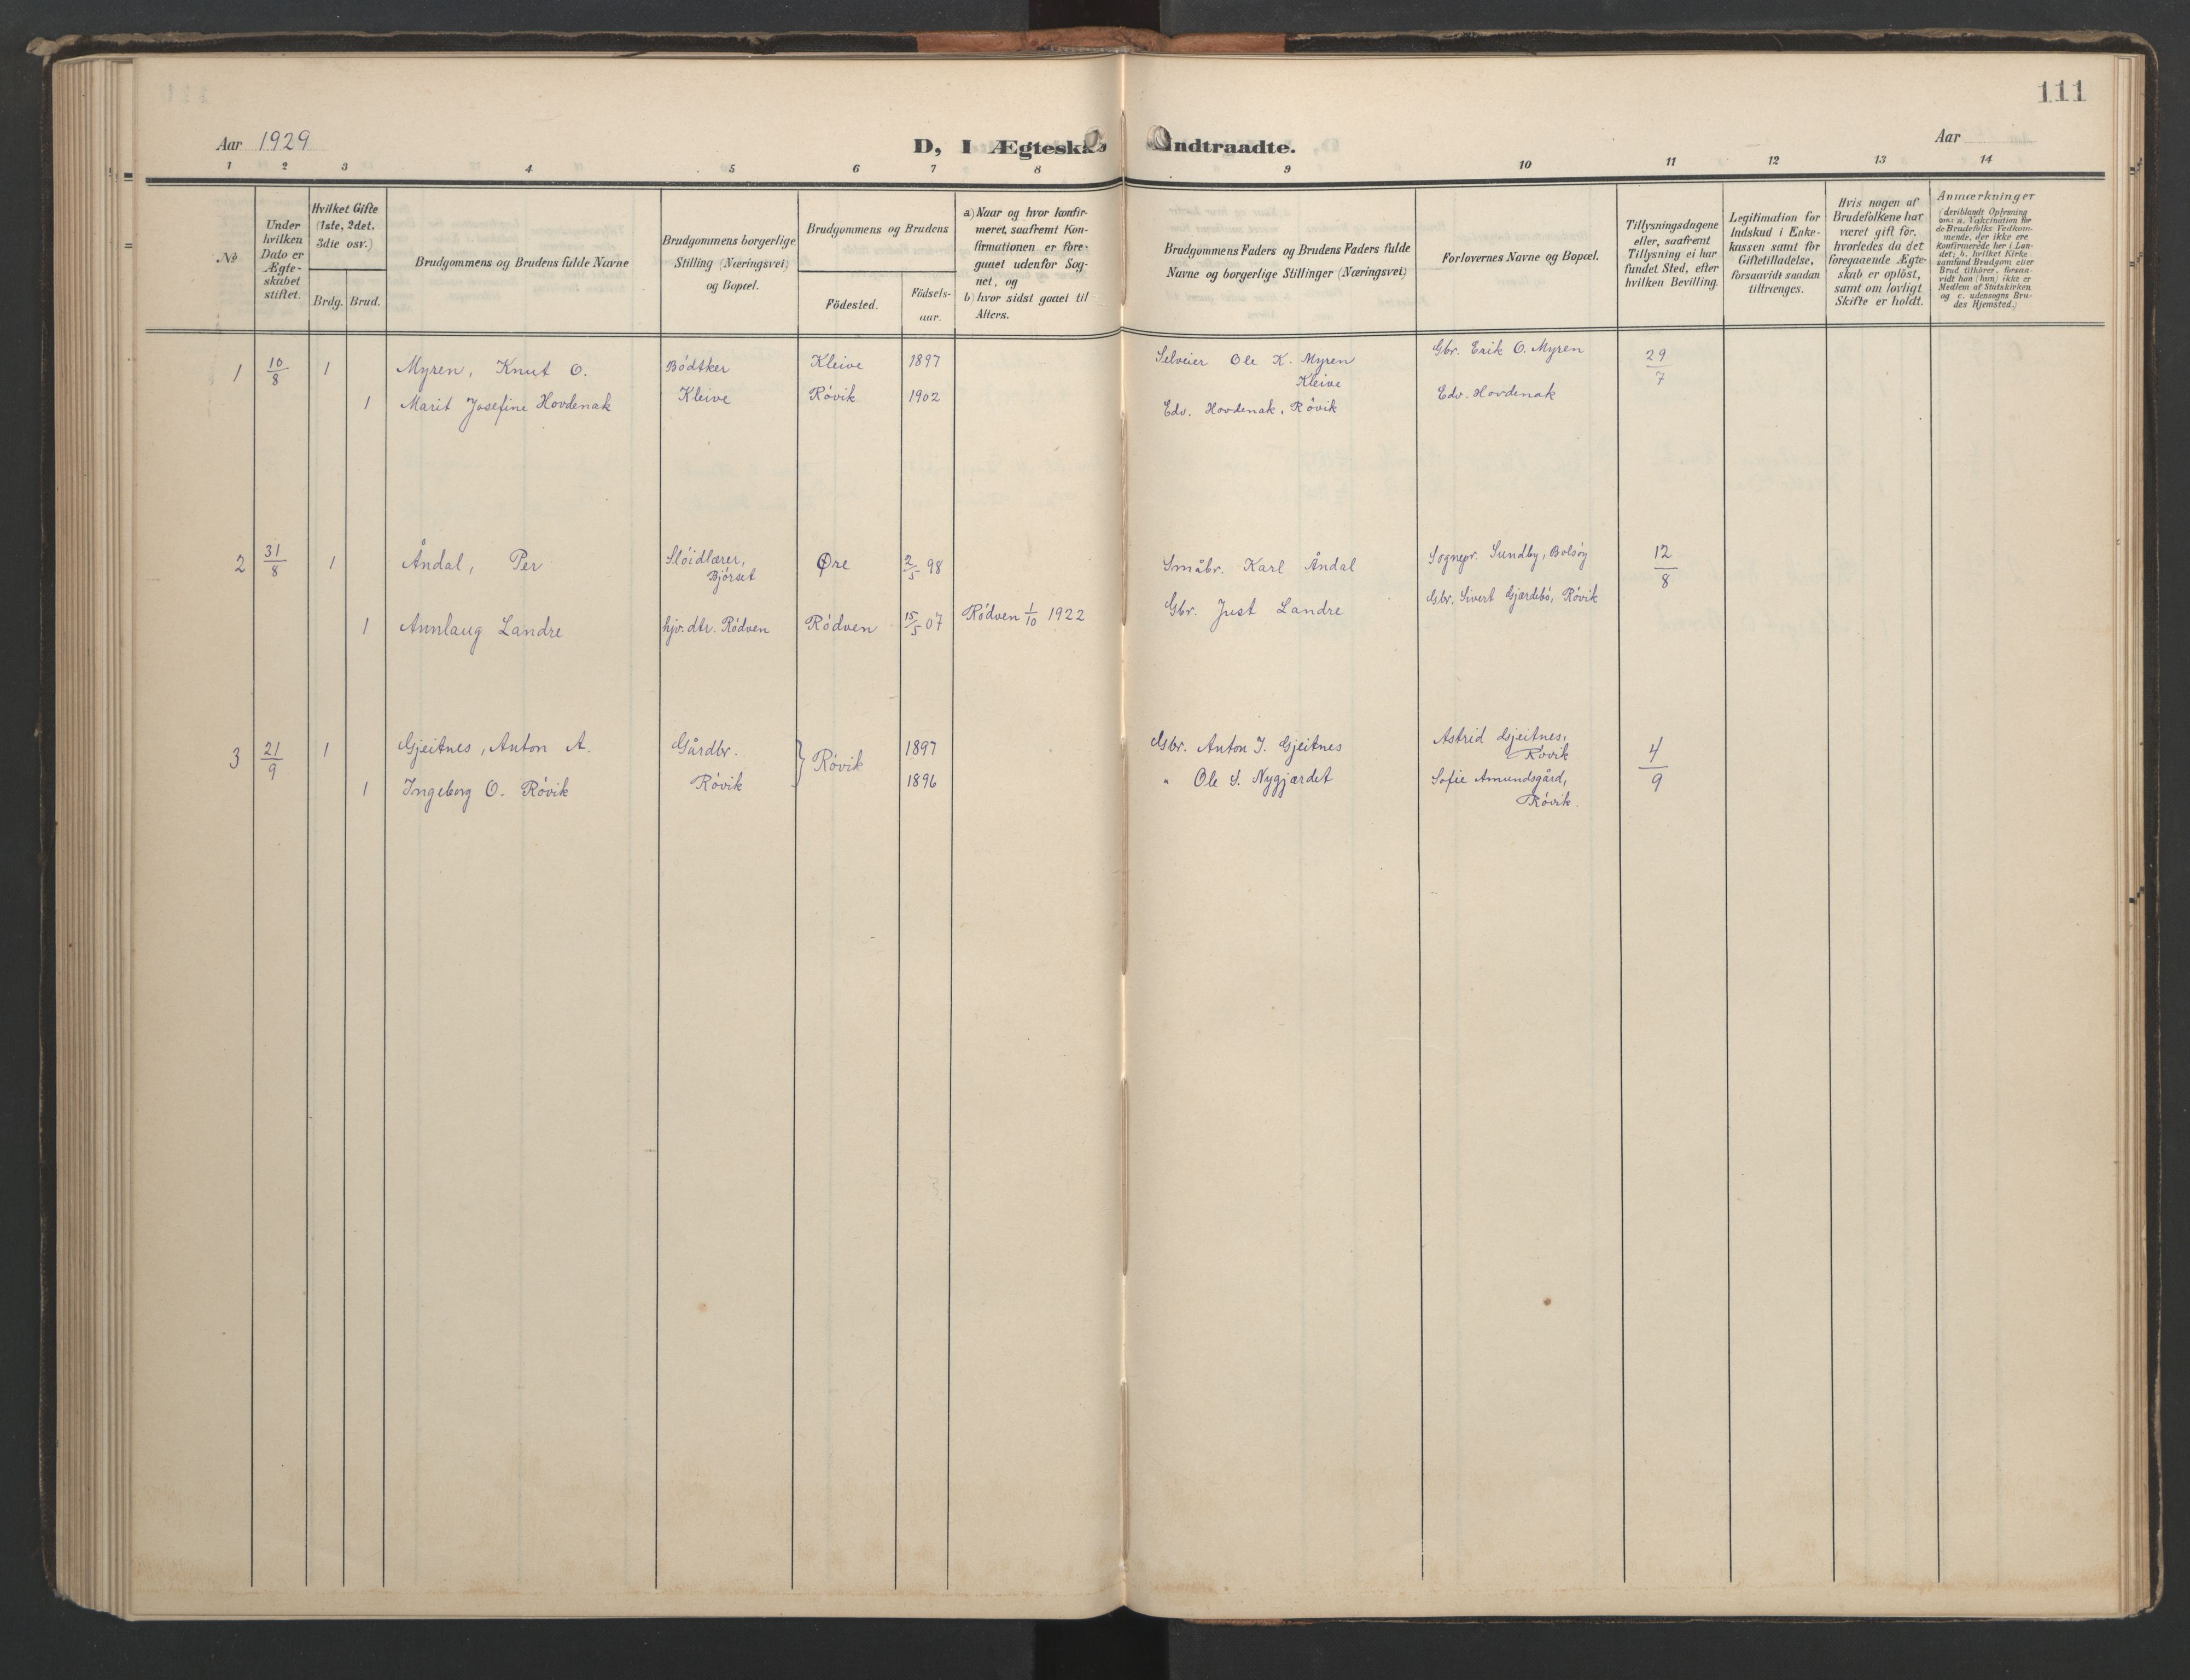 111
Aar 1929
D, I Ægteskab Indtraadte.
Aar
1 2 3 4 5 6 7 8 9 10 11 12 13 14
No
Under hvilken Dato er Ægte-skabet stiftet.
Hvilket Gifte (1ste, 2det, 3die osv.)
Brdg. Brud.
Brudgommens og Brudens fulde Navne
Brudgommens borgerlige Stilling (Næringsvei) og Bopæl.
Brudgommens og Brudens
Födested.
Födsels-aar.
a) Naar og hvor konfir-meret, saafremt Kon-firmationen er fore-gaaet udenfor Sog-net, og
b) hvor sidst gaaet til Alters.
Brudgommens Faders og Brudens Faders fulde Navne og borgerlige Stillinger (Næringsvei)
Forlovernes Navne og Bopæl.
Tillysningsdagene eller, saafremt Tillysning ei har fundet Sted, efter hvilken Bevilling.
Legitimation for Indskud i Enke-kassen samt for Giftetilladelse, forsaavidt saadan tiltrænges.
Hvis nogen af Brudefolkene har været gift för, hvorledes da det foregaaende Ægte-skab er oplöst, samt om lovligt Skifte er holdt.
Anmærkninger (deriblandt Oplysning om: a. Vakcination for de Brudefolks Vedkom-mende, der ikke ere konfirmerede her i Lan-det; b. hvilket Kirke-samfund Brudgom eller Brud tilhörer, forsaa-vidt han (hun) ikke er Medlem af Statskirken og c. udensogns Bru-des Hjemsted.)
1 10/8 1 Myren, Knut O. Bödtker Kleive 1897 Selveier Ole K. Myren Kleive Gbr. Erik O. Myren 29/7
1 Marit Josefine Hovdenak Kleive Rövik 1902 Edv. Hovdenak, Rövik Edv. Hovdenak
2 31/8 1 Åndal, Per Slöidlærer, Bjørset Øre 2/5 98 Småbr. Karl Åndal Sognepr. Sundby, Bolsöy 12/8
1 Annlaug Landre hjv. dtr. Rödven Rödven 15/5 07 Rödven 1/10 1922 Gbr. Just Landre Gbr. Sivert Gjærdebö, Rövik
3 21/9 1 Gjeitnes, Anton A. Gårdbr. Rövik 1897 Gbr. Anton J. Gjeitnes Astrid Gjeitnes, Rövik 4/9
1 Ingeborg O. Rövik Rövik 1896 " Ole S. Nygjærdet Sofie Amundsgård, Rövik.